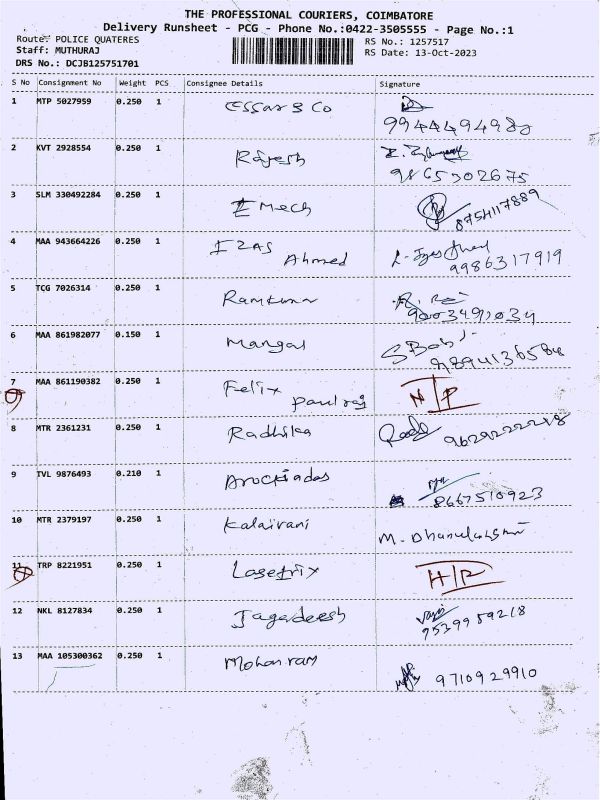 THE PROFESSIONAL COURIERS, COIMBATORE
Delivery Runsheet - PCG - Phone No.:0422-3505555 - Page No.:1
Route: POLICE QUATERES RS No.: 1257517
Staff: MUTHURAJ RS Date: 13-Oct-2023
DRS No.: DCJB125751701
S No Consignment No Weight PCS Consignee Details Signature
1 MTP 5027959 0.250 1 Essar & Co
9944494988
2 KVT 2928554 0.250 1 Rajesh
9865302675
3 SLM 330492284 0.250 1 Z Mech
8754117889
4 MAA 943664226 0.250 1 IZAS
Ahmed
9986317919
5 TCG 7026314 0.250 1 Ramkumar
6 MAA 861982077 0.150 1 Mangal
S Bob
7 MAA 861190382 0.250 1 Felix
paulraj
8 MTR 2361231 0.250 1 Radhika
9629222218
9 TVL 9876493 0.210 1 Arockiadas
8667510923
10 MTR 2379197 0.250 1 Kalairani M. Dhanulakshmi
11 TRP 8221951 0.250 1 Lasetrix
12 NKL 8127834 0.250 1 Jagadeesh
9539989218
13 MAA 105300362 0.250 1 Mohanram
9710929910